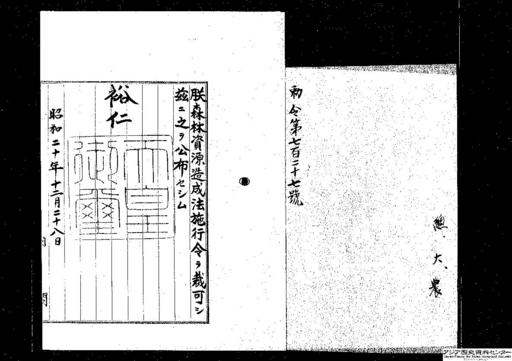 勅令第七百二十七號
大、農
朕森林資源造成法施行令ヲ裁可シ
茲ニ之ヲ公布セシム
裕仁
天皇御璽
昭和二十年十二月二十八日
内閣
アジア歴史資料センター